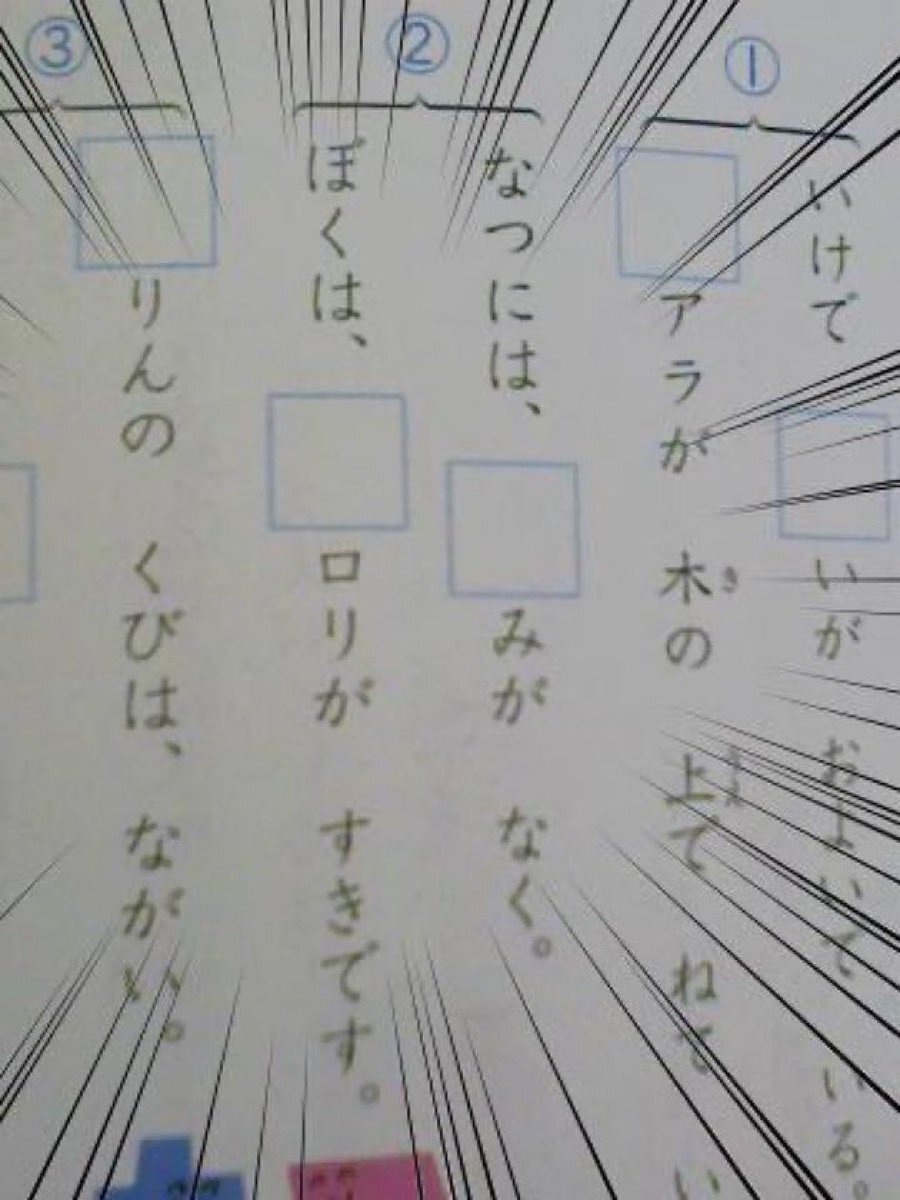 ①
いけで □いが およいで いる。
□アラが 木の 上で ねて い
②
なつには、□みが なく。
ぼくは、□ロリが すきです。
③
□りんの くびは、ながい。